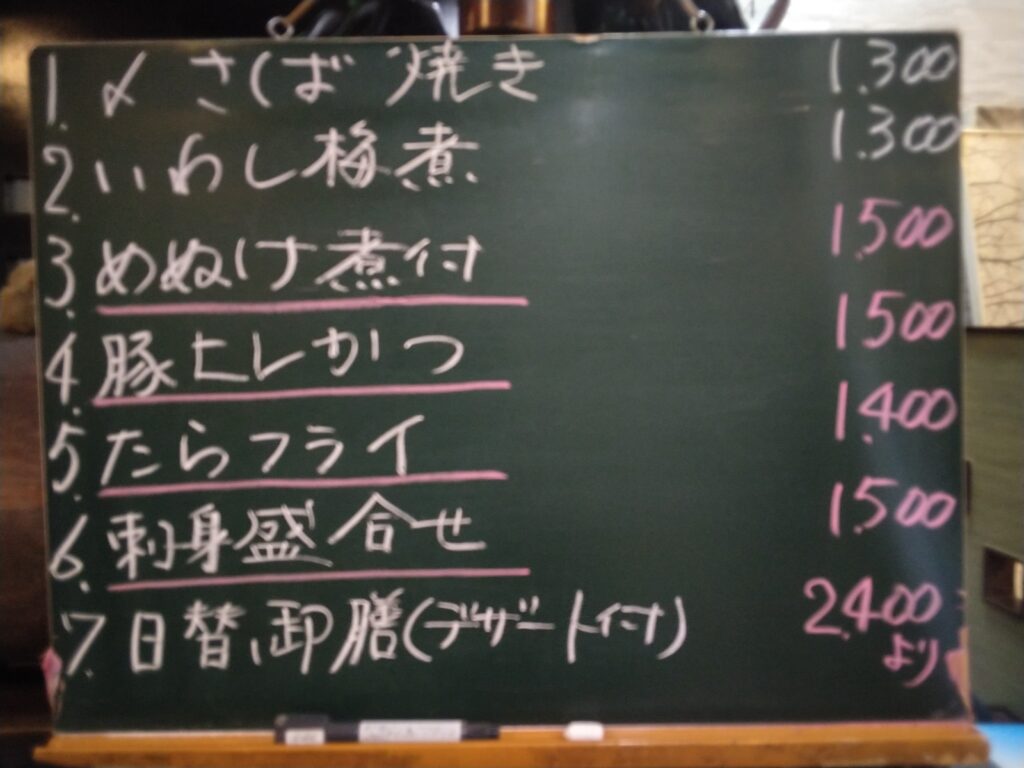 1. 〆さば焼き 1.300
2. いわし梅煮 1.300
3. めぬけ煮付 1.500
4. 豚ヒレかつ 1.500
5. たらフライ 1.400
6. 刺身盛合せ 1.500
7. 日替御膳(デザート付) 2.400
より